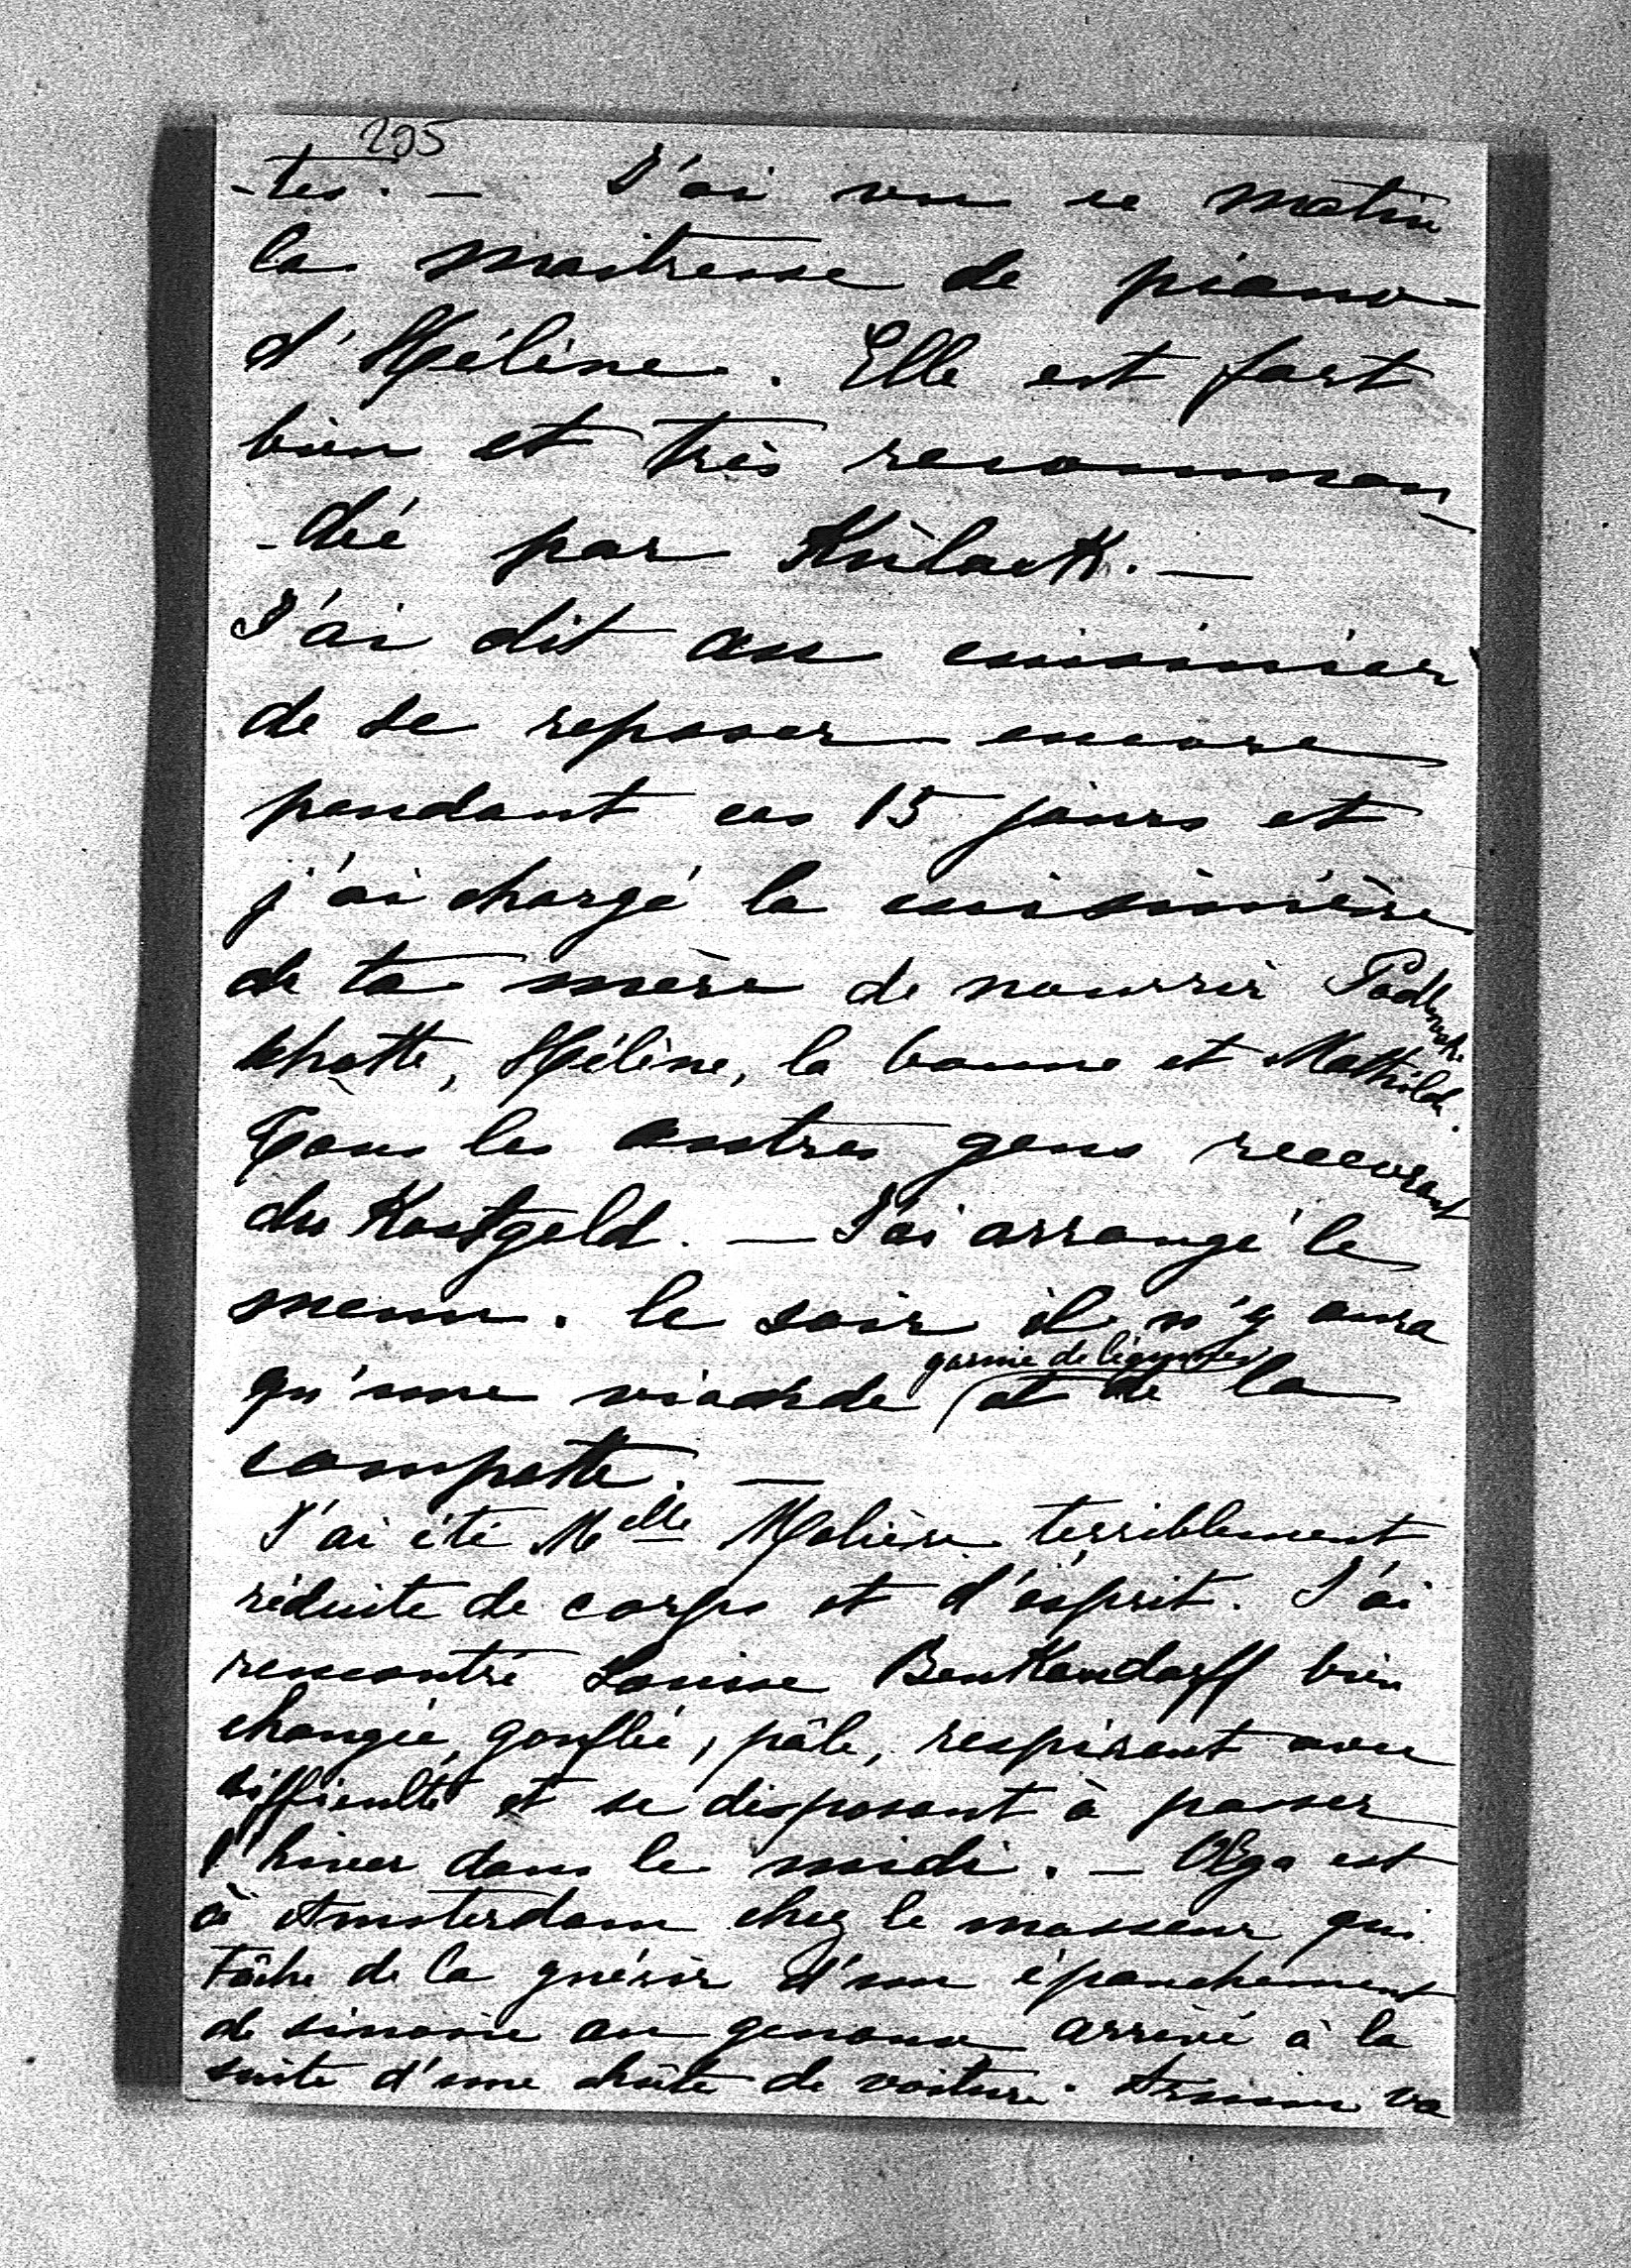 295
-tes. — J'ai vu ce matin
la maitresse de piano
d'Hélène. Elle est fort
bien et très recomman
-dée par Kulack. —
J'ai dit au cuisinier
de se reposer encore
pendant ces 15 jours et
j'ai chargé la cuisinière
de ta mère de nourrir
Hélène, la bonne et Mathilde.
Tous les autres gens recevront
du Kostgeld. — J'ai arrangé le
menu. le soir il n'y aura
garnie de légumes
qu'une viande et de la
compotte. —
J'ai été Melle Molière terriblement
réduite de corps et d'ésprit. J'ai
rencontré Louise Benkendorff bien
changée, gonflée, pâle, respirant avec
difficulté et se disposant à passer
l'hiver dans le midi. — Olga est
à Amsterdam chez le masseur qui
tâche de la guérir d'un épanchement
de sinovie au genoux arrivé à la
suite d'une chûte de voiture. va